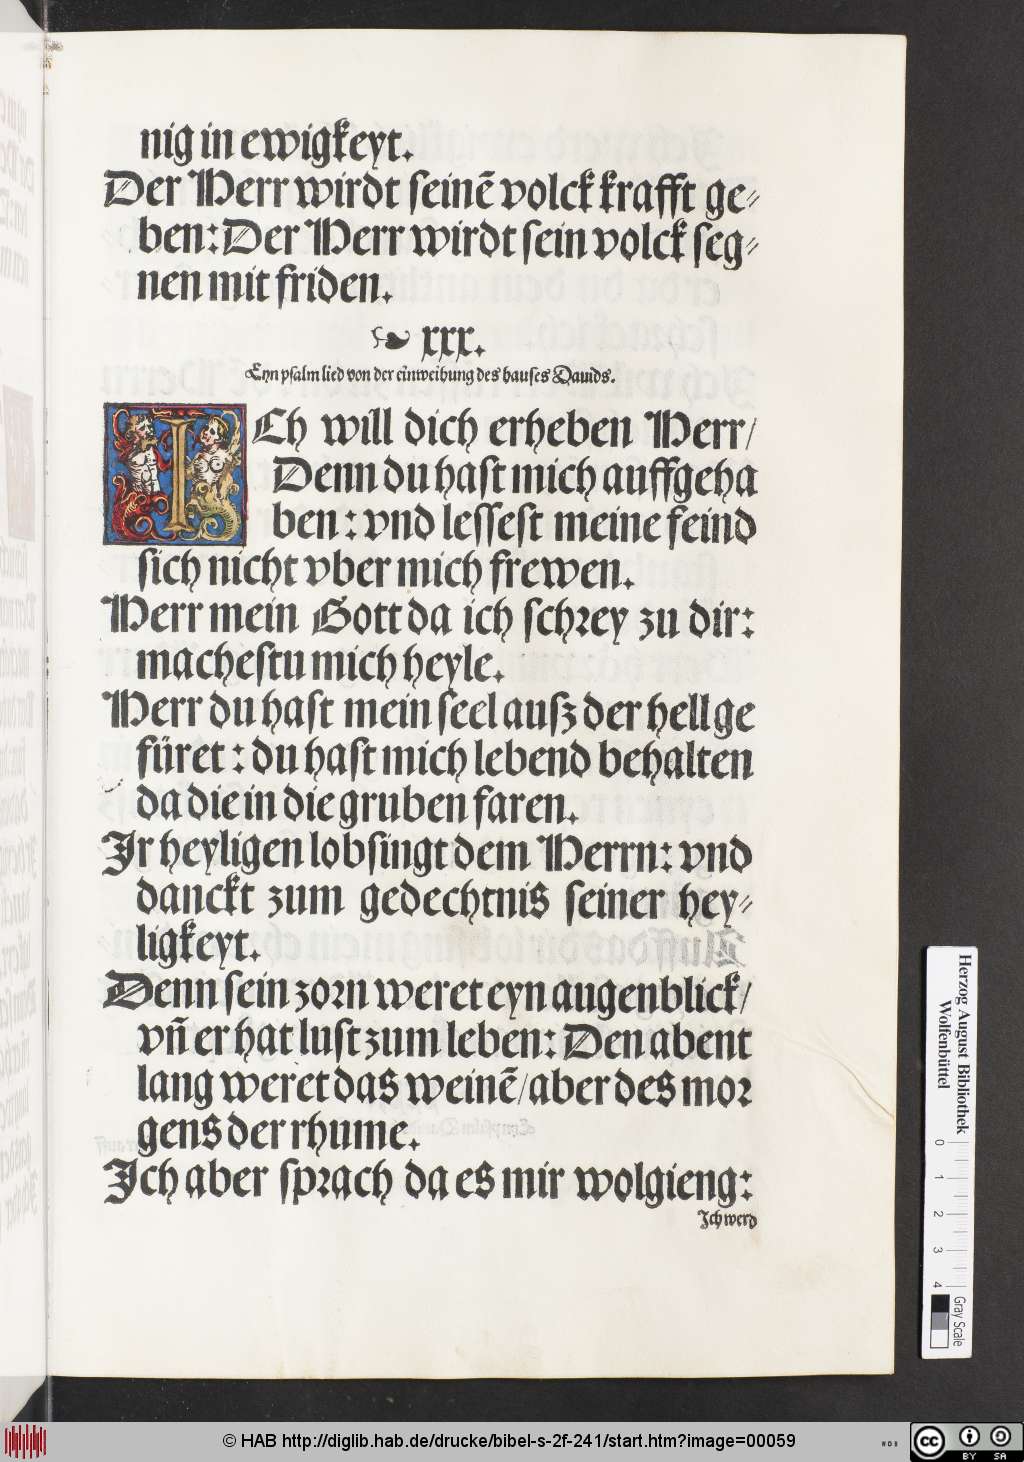 nig in ewigkeyt.
Der Herr wirdt seinē volck krafft ge⸗
ben: Der Herr wirdt sein volck seg⸗
nen mit friden.
xxx.
Eyn psalm lied von der einweihung des hauses Dauids.
ICh will dich erheben Herr/
Denn du hast mich auffgeha
ben: vnd lessest meine feind
sich nicht vber mich frewen.
Herr mein Gott da ich schrey zu dir:
machestu mich heyle.
Herr du hast mein seel ausz der hell ge
füret: du hast mich lebend behalten
da die in die gruben faren.
Ir heyligen lobsingt dem Herrn: vnd
danckt zum gedechtnis seiner hey⸗
ligkeyt.
Denn sein zorn weret eyn augenblick/
vn̄ er hat lust zum leben: Den abent
lang weret das weinē/ aber des mor
gens der rhume.
Ich aber sprach da es mir wolgieng:
Ich werd
Herzog August Bibliothek
Wolfenbüttel
0 1 2 3 4
Gray Scale
© HAB http://diglib.hab.de/drucke/bibel-s-2f-241/start.htm?image=00059
cc BY SA